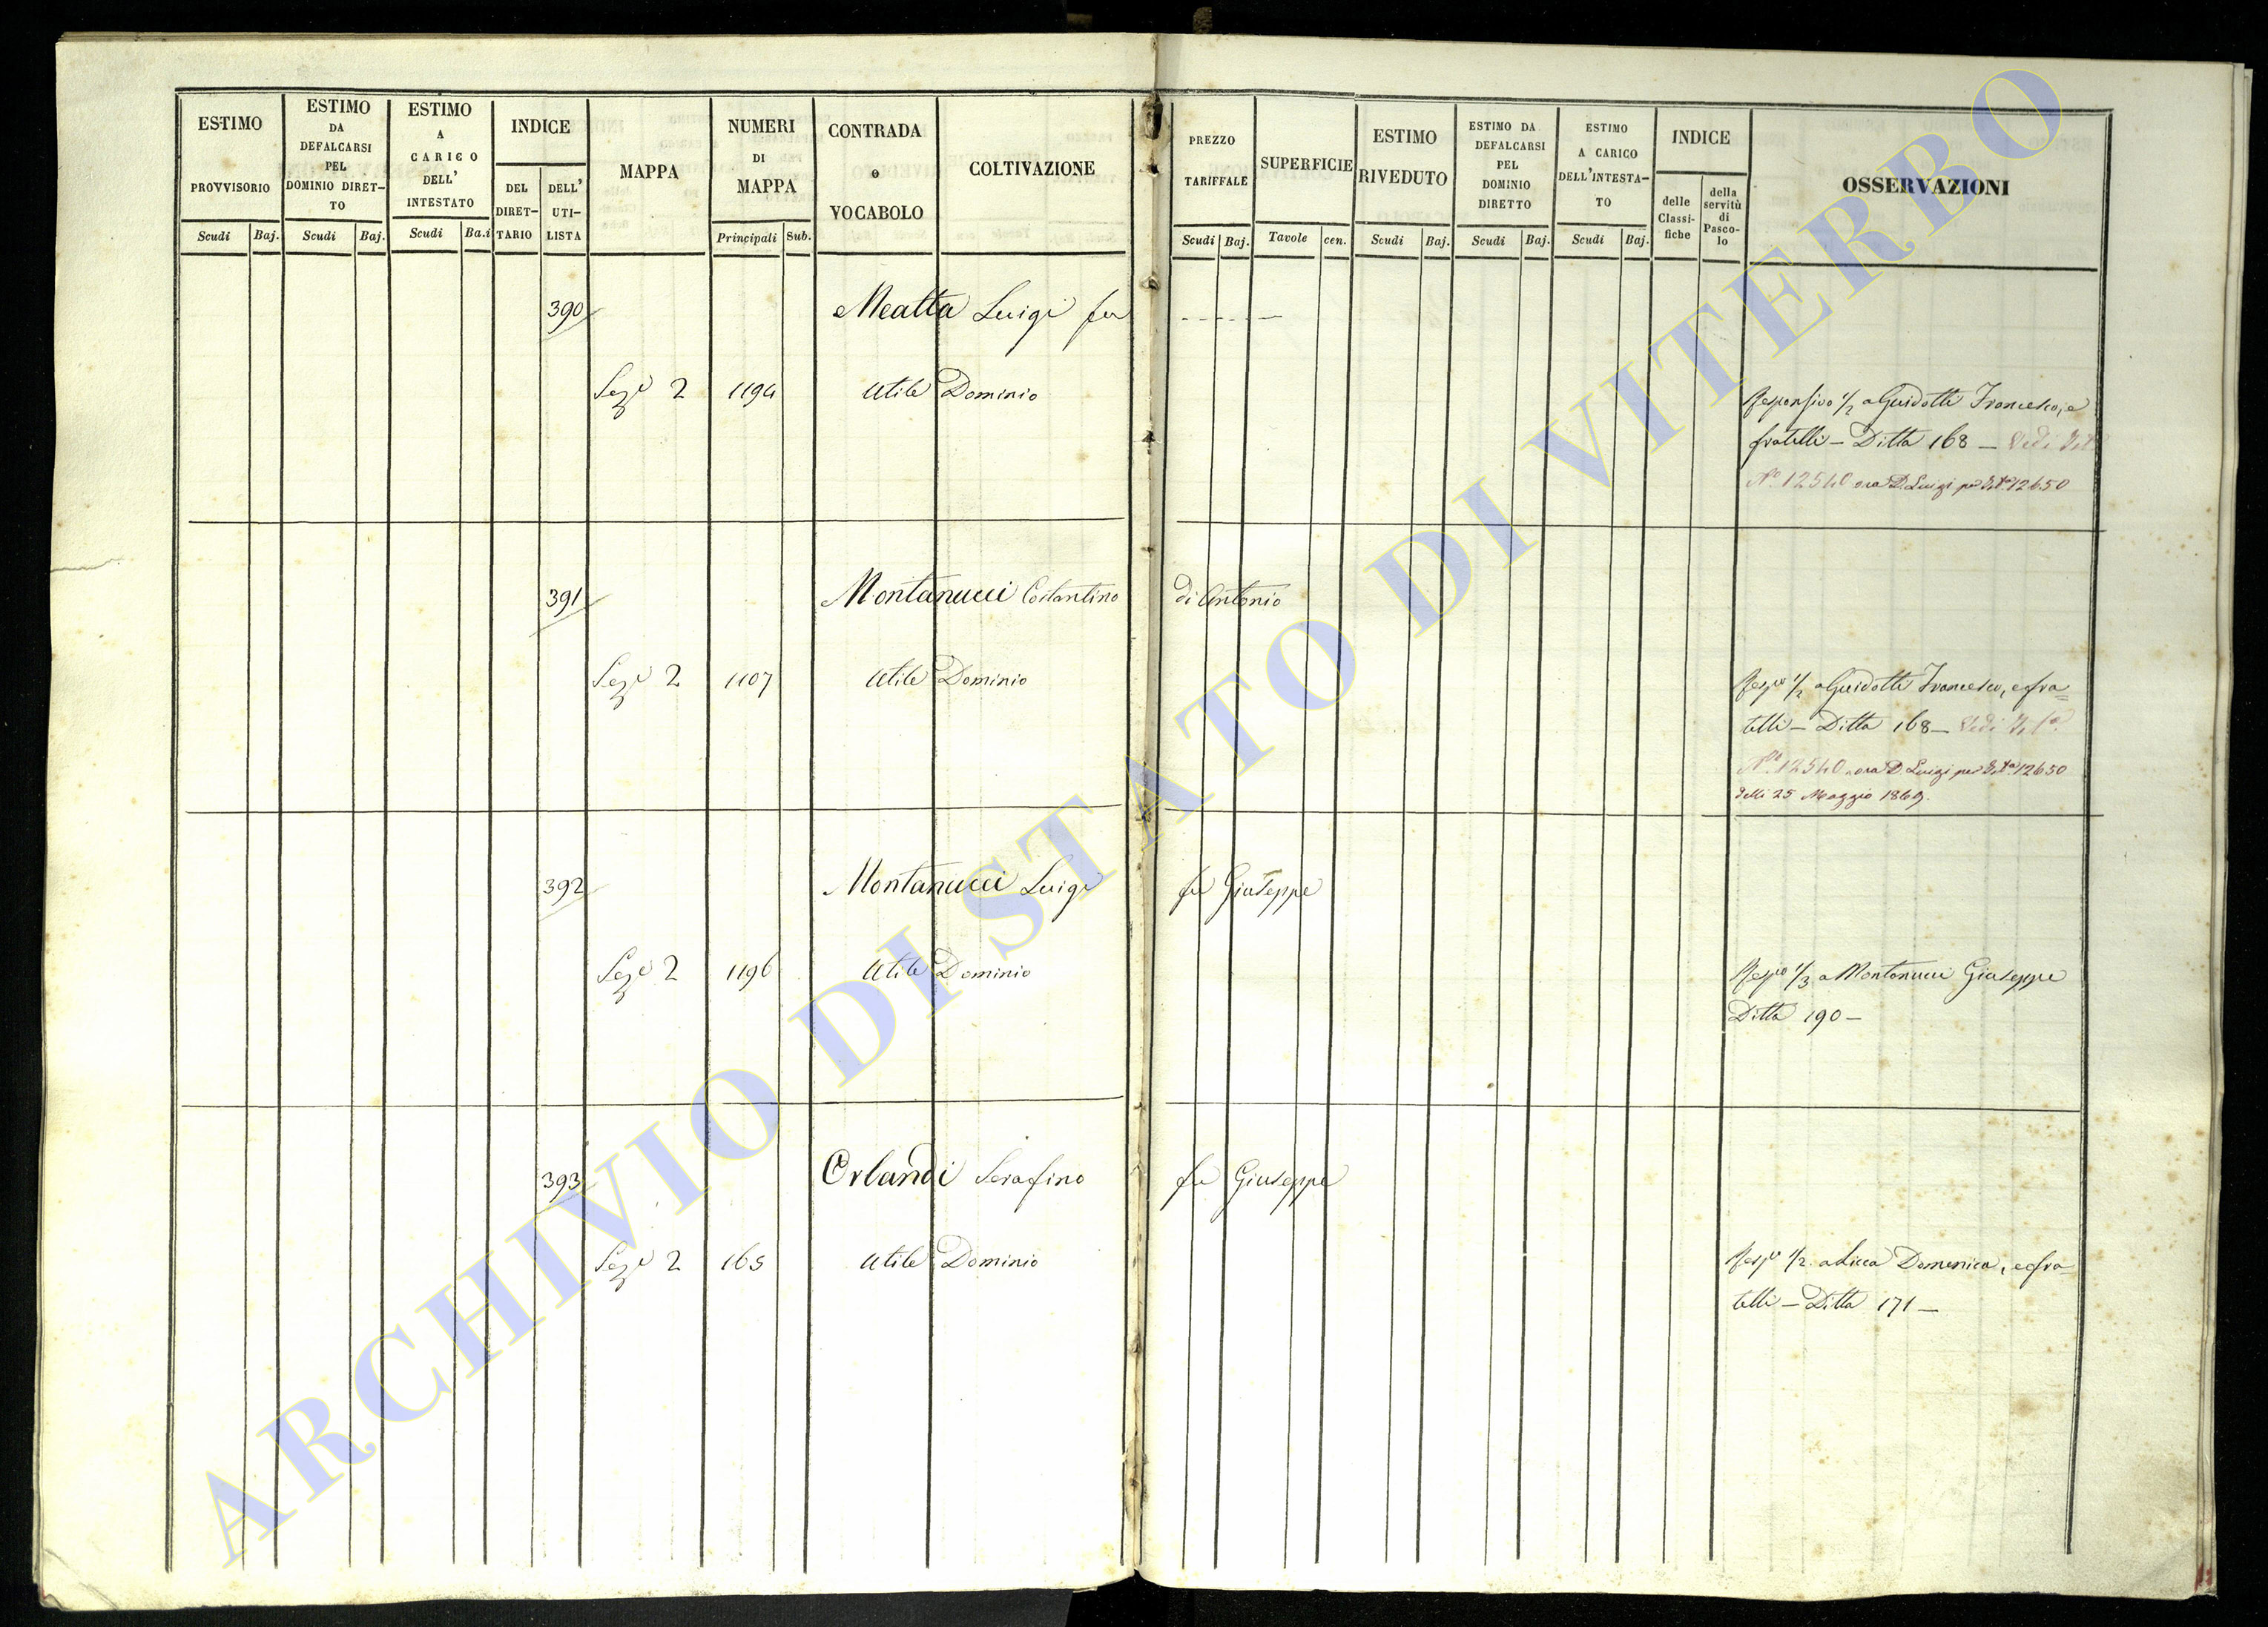 ESTIMO PROVVISORIO
Scudi Baj.
ESTIMO DA DEFALCARSI PEL DOMINIO DIRET-TO
Scudi Baj.
ESTIMO A CARICO DELL' INTESTATO
Scudi Ba.i
INDICE
DEL DIRET-TARIO
DELL' UTI-LISTA
MAPPA
NUMERI DI MAPPA
Principali Sub.
CONTRADA o VOCABOLO
COLTIVAZIONE
PREZZO TARIFFALE
Scudi Baj.
SUPERFICIE
Tavole cen.
ESTIMO RIVEDUTO
Scudi Baj.
ESTIMO DA DEFALCARSI PEL DOMINIO DIRETTO
Scudi Baj.
ESTIMO A CARICO DELL'INTESTA-TO
Scudi Baj.
INDICE
delle Classi-fiche
della servitù di Pasco-lo
OSSERVAZIONI
390 Meatta Luigi fu - - - - -
Sez.e 2 1194 Utile Dominio
Responsivo 1/2 a Guidotti Francesco, e
fratelli - Ditta 168 - Vedi
N.° 12540 ora D. Luigi per 12650
391 Montanucci Costantino di Antonio
Sez.e 2 1107 Utile Dominio
Resp.vo 1/2 a Guidotti Francesco, e fra=
telli - Ditta 168 - Vedi
N.° 12540 ora D Luigi per 12650
delli 25 Maggio 1869.
392 Montanucci Luigi fu Giuseppe
Sez.e 2 1196 Utile Dominio
Resp.vo 1/3 a Montanucci Giuseppe
Ditta 190 -
393 Orlandi Serafino fu Giuseppe
Sez.e 2 165 Utile Dominio
Resp.vo 1/2 a Licca Domenica, e fra-
telli - Ditta 171 -
ARCHIVIO DI STATO DI VITERBO